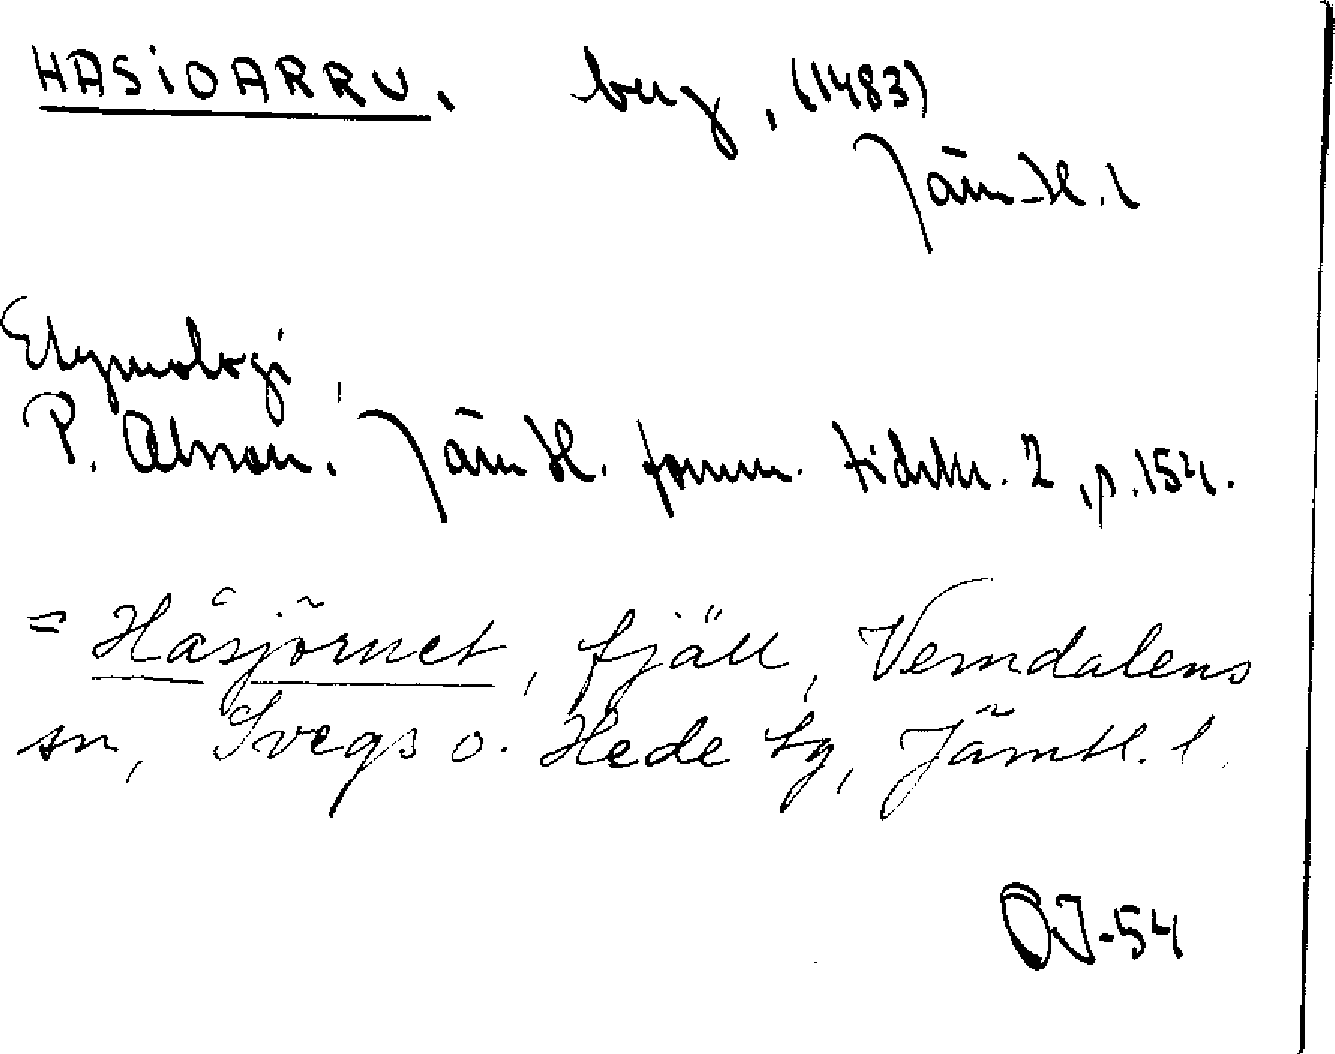 HASIOARRU. berg, (1483)
Jämtl. l
Etymologi,
P. Olsson. Jämtl. fornm. tidskr. 2, p. 154.
= Håsjörnet, fjäll, Vemdalens
sn, Svegs o. Hede tg, Jämtl. l.
OJ-54